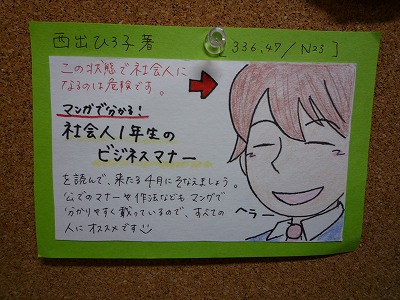 西出ひろ子著 [336.47/N23]
この状態で社会人に
なるのは危険です。
マンガで分かる!
社会人1年生の
ビジネスマナー
を読んで、来たる4月にそなえましょう。
公でのマナーや作法などもマンガで
分かりやすく載っているので、すべての
人にオススメです
ヘラー